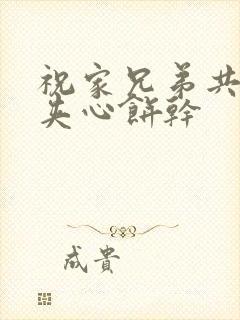 祝家兄弟共
夹心餅幹
成貴